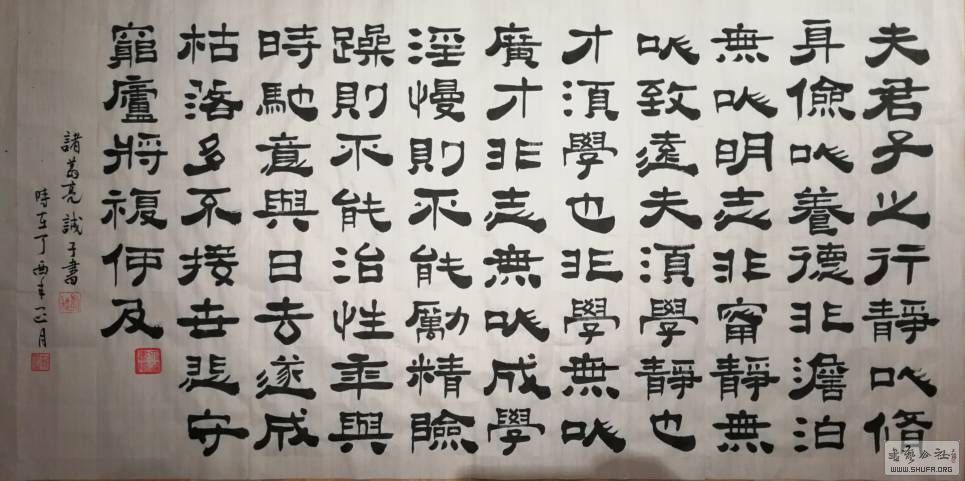 夫君子之行靜以脩
身儉以養德非澹泊
無以明志非甯靜無
以致遠夫須學靜也
才須學也非學無以
廣才非志無以成學
淫慢則不能勵精險
躁則不能治性年與
時馳意與日去遂成
枯落多不接世悲守
窮廬將複何及
諸葛亮誡子書
時在丁酉年正月
WWW.SHUFA.ORG